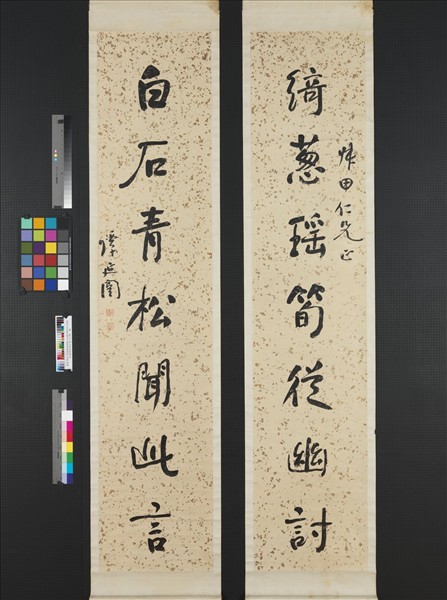 綺葱瑤筍從幽討
田仁兄正
白石青松聞此言
譚延闓